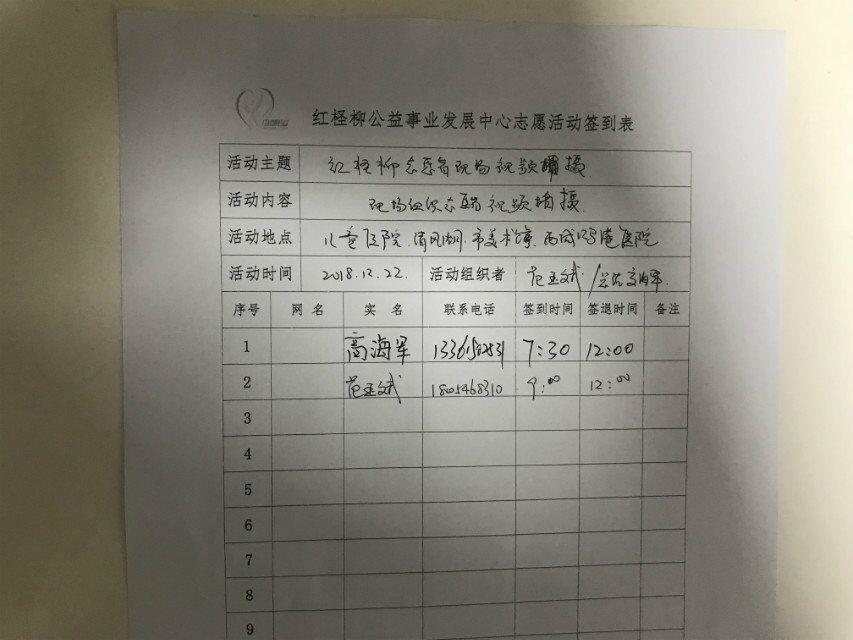 红柽柳公益事业发展中心志愿活动签到表
活动主题 红柽柳志愿者现场视频拍摄
活动内容 现场组织志愿者视频拍摄
活动地点 儿童医院.清风湖.市美术馆.西城 医院
活动时间 2018.12.22. 活动组织者 范玉斌/
序号 网名 实名 联系电话 签到时间 签退时间 备注
1 高海军 7:30 12:00
2 范玉斌 1805468310 9:00 12:00
3
4
5
6
7
8
9